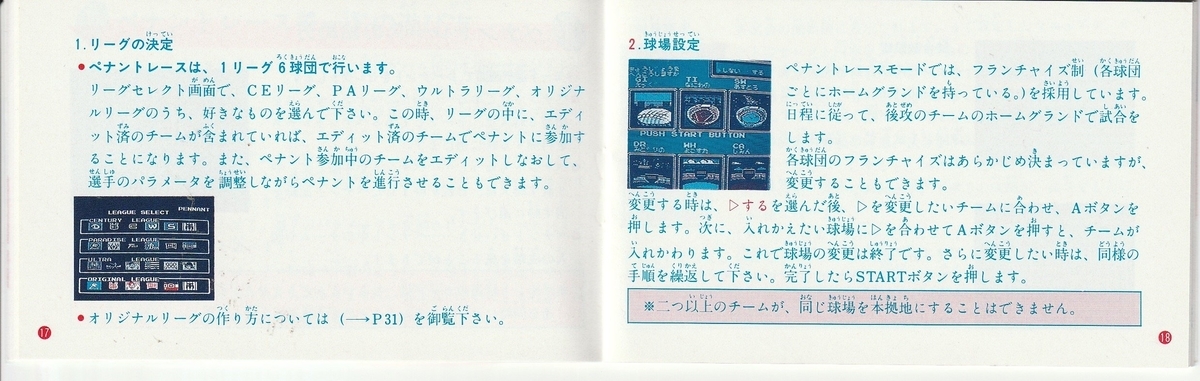 1.リーグの決定
●ペナントレースは、1リーグ6球団で行います。
リーグセレクト画面で、CEリーグ、PAリーグ、ウルトラリーグ、オリジナ
ルリーグのうち、好きなものを選んで下さい。この時、リーグの中に、エディ
ット済のチームが含まれていれば、エディット済のチームでペナントに参加す
ることになります。また、ペナント参加中のチームをエディットしなおして、
選手のパラメータを調整しながらペナントを進行させることもできます。
PENNANT
LEAGUE SELECT
CENTURY LEAGUE
PARADISE LEAGUE
ULTRA LEAGUE
ORIGINAL LEAGUE
●オリジナルリーグの作り方については(→P31)を御覧下さい。
17
2.球場設定
GI TI SW
PUSH START BUTTON
OR WH CA
ペナントレースモードでは、フランチャイズ制(各球団
ごとにホームグランドを持っている。)を採用しています。
日程に従って、後攻のチームのホームグランドで試合を
します。
各球団のフランチャイズはあらかじめ決まっていますが、
変更することもできます。
変更する時は、▷するを選んだ後、▷を変更したいチームに合わせ、Aボタンを
押します。次に、入れかえたい球場に▷を合わせてAボタンを押すと、チームが
入れかわります。これで球場の変更は終了です。さらに変更したい時は、同様の
手順を繰返して下さい。完了したらSTARTボタンを押します。
※二つ以上のチームが、同じ球場を本拠地にすることはできません。
18